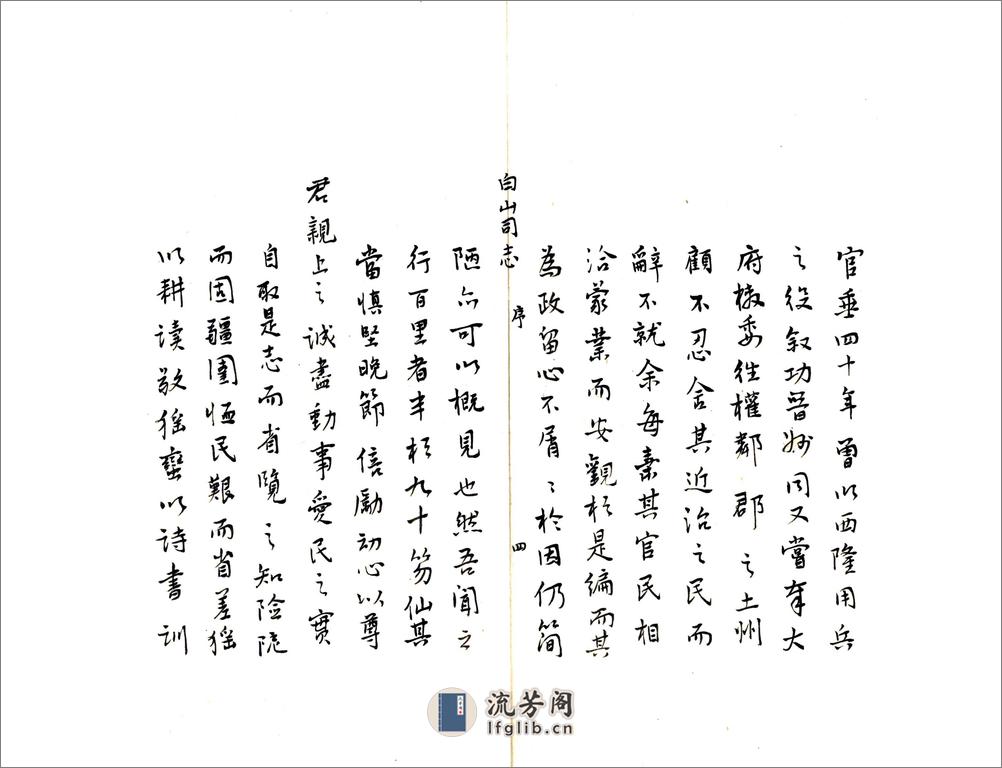 官垂四十年曽以西隆用兵
之役叙功晉州同又嘗奉大
府檄委徃權鄰郡之土州
顧不忍舍其近治之民而
辭不就余每嘉其官民相
洽蒙業而安觀於是編而其
為政留心不屑〻於因仍簡
白山司志 序 四
陋亦可以概見也然吾聞之
行百里者半於九十笏仙其
當慎堅晚節倍勵初心以尊
君親上之誠盡勤事愛民之實
自取是志而省覽之知險阨
而固疆圉恤民艱而省差徭
以耕讀教猺蠻以詩書訓
流芳阁
lfglib.cn